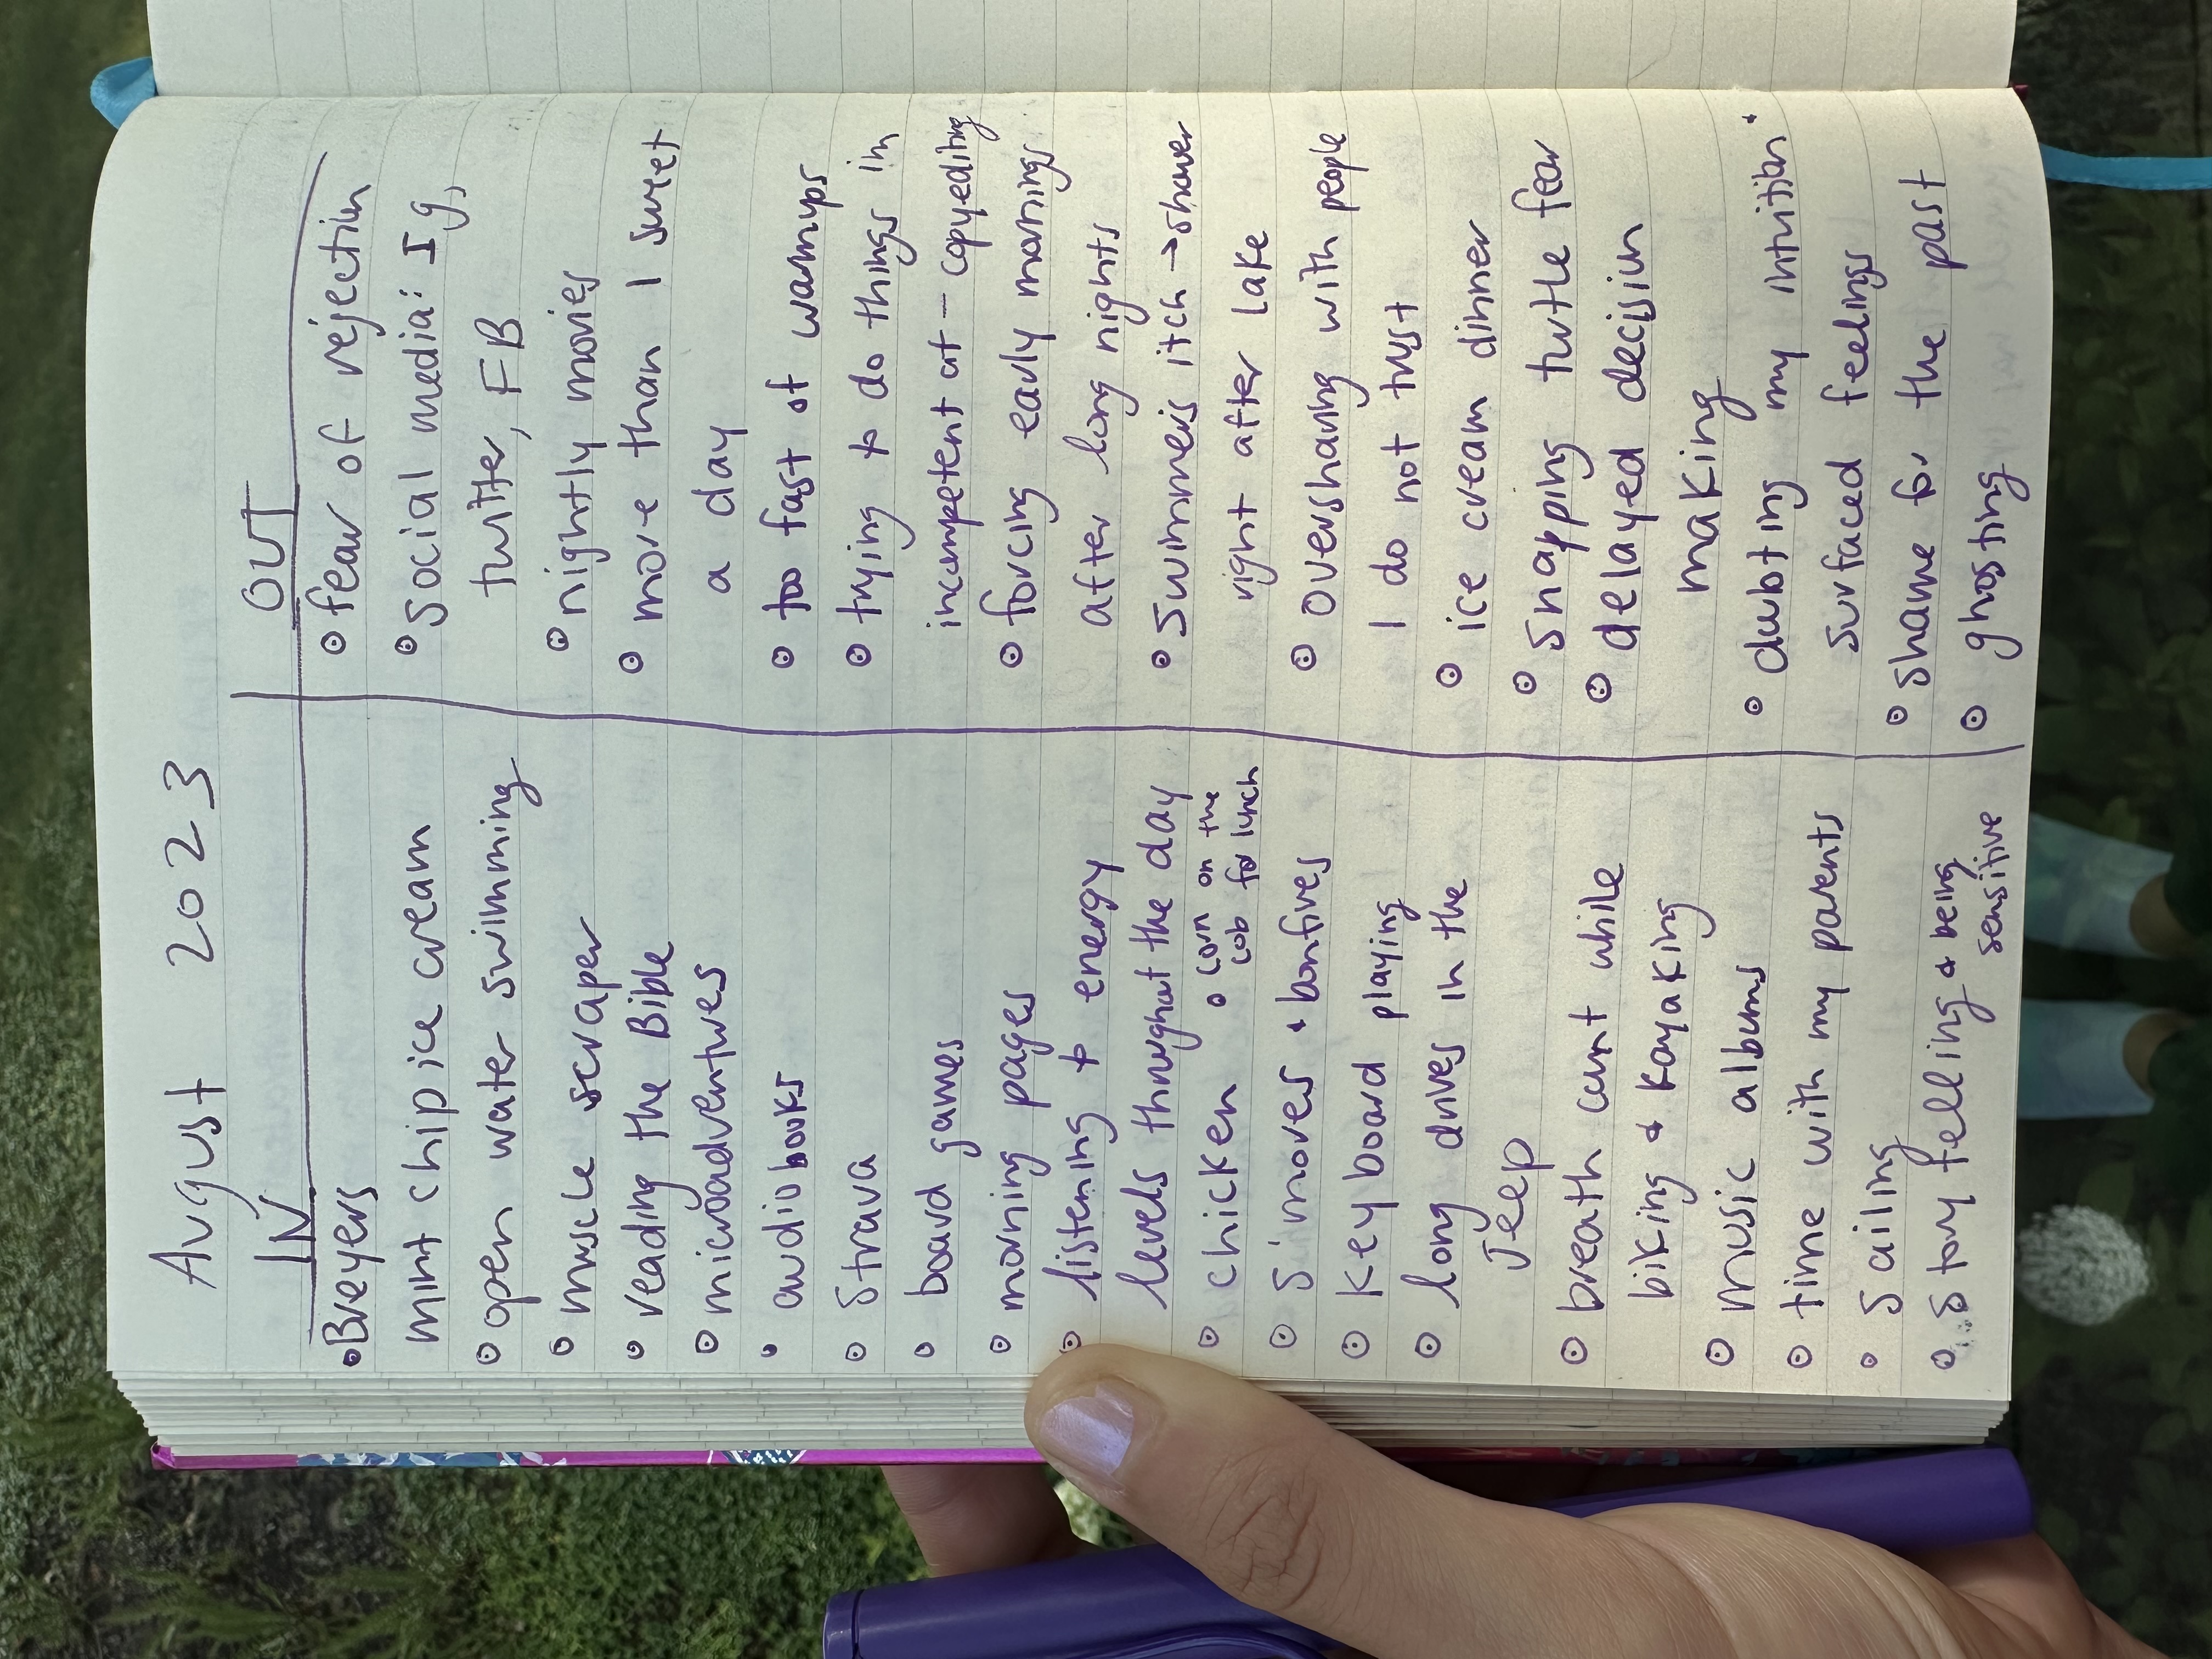 August 2023
IN
• Breyers
mint chip ice cream
• open water swimming
• muscle scraper
• reading the Bible
• microadventures
• audiobooks
• Strava
• board games
• morning pages
• listening to energy
levels throughout the day
• chicken • corn on the
cob for lunch
• S'mores + bonfires
• Keyboard playing
• long drives in the
Jeep
• breath count while
biking + kayaking
• music albums
• time with my parents
• Sailing
• Story telling + being
sensitive
OUT
• fear of rejection
• social media: Ig,
twitter, FB
• nightly movies
• more than 1 sweet
a day
• too fast of warmups
• trying to do things im
incompetent at - copyediting
• forcing early mornings
after long nights
• Swimmers itch → shower
right after lake
• Oversharing with people
I do not trust
• ice cream dinner
• Snapping turtle fear
• delayed decision
making
• doubting my intuition +
surfaced feelings
• shame for the past
• ghosting